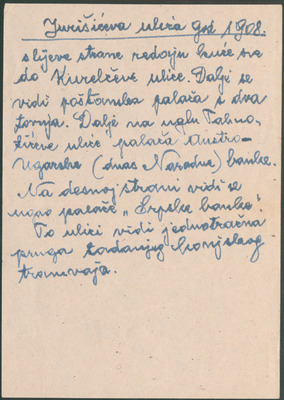 Jurišićeva ulica god 1908.
s lijeve strane redaju kuće sve
do Kurelčeve ulice. Dalje se
vidi poštanska palača s dva
tornja. Dalje na uglu Palmo-
tićeve ulice palača Austro-
ugarske (danas Narodne) banke.
Na desnoj strani vidi se
ugao palače „Srpske banke".
Po ulici vidi jednotračna
pruga tadanjeg konjskog
tramvaja.